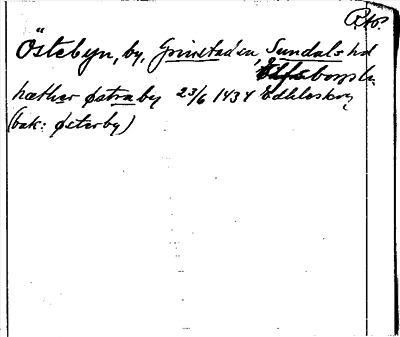 RAP.
Östebyn, by, Grinstad sn, Sundals hd
Elfsborgs l.
hæther østraby 23/6 1434 Edhleskog,
(bak: østerby)